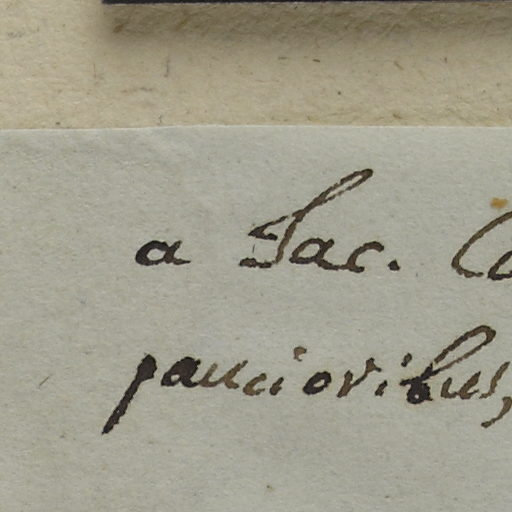 a Jac. Co
paucioribus,